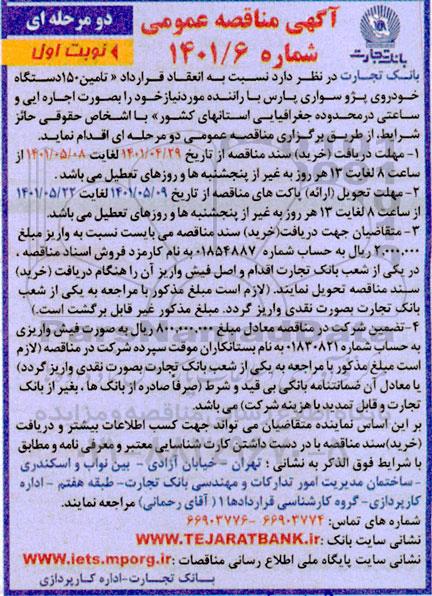 آگهی مناقصه عمومی
شماره ۱۴۰۱/۶
دو مرحله ای
نوبت اول
بانک تجارت
بانک تجارت در نظر دارد نسبت به انعقاد قرارداد « تامین۱۵۰دستگاه
خودروی پژو سواری پارس با راننده موردنیازخود را بصورت اجاره ایی و
ساعتی درمحدوده جغرافیایی استانهای کشور» با اشخاص حقوقی حائز
شرایط، از طریق برگزاری مناقصه عمومی دو مرحله ای اقدام نماید.
۱- مهلت دریافت (خرید) سند مناقصه از تاریخ ۱۴۰۱/۰۴/۲۹ لغایت ۱۴۰۱/۰۵/۰۸ از
ساعت ۸ لغایت ۱۳ هر روز به غیر از پنجشنبه ها و روزهای تعطیل می باشد.
۲- مهلت تحویل (ارائه) پاکت های مناقصه از تاریخ ۱۴۰۱/۰۵/۰۹ لغایت ۱۴۰۱/۰۵/۲۲
از ساعت ۸ لغایت ۱۳ هر روز به غیر از پنجشنبه ها و روزهای تعطیل می باشد.
۳ - متقاضیان جهت دریافت(خرید) سند مناقصه می بایست نسبت به واریز مبلغ
۲.۰۰۰.۰۰۰ ریال به حساب شماره ۰۱۸۵۴۸۸۷ به نام کارمزد فروش اسناد مناقصه ،
در یکی از شعب بانک تجارت اقدام و اصل فیش واریز آن را هنگام دریافت (خرید)
سند مناقصه تحویل نمایند. (لازم است مبلغ مذکور با مراجعه به یکی از شعب
بانک تجارت بصورت نقدی واریز گردد. مبلغ مذکور غیر قابل برگشت است.)
۴- تضمین شرکت در مناقصه معادل مبلغ ۸۰۰,۰۰۰,۰۰۰ ریال به صورت فیش واریزی
به حساب شماره ۰۱۸۳۰۸۲۱ به نام بستانکاران موقت سپرده شرکت در مناقصه (لازم
است مبلغ مذکور با مراجعه به یکی از شعب بانک تجارت بصورت نقدی واریز گردد)
یا معادل آن ضمانتنامه بانکی بی قید و شرط (صرفا صادره از بانک ها ، بغیر از بانک
تجارت و قابل تمدید با هزینه شرکت) می باشد.
بر این اساس نماینده متقاضیان می تواند جهت کسب اطلاعات بیشتر و دریافت
(خرید)سند مناقصه با در دست داشتن کارت شناسایی معتبر و معرفی نامه و مطابق
با شرایط فوق الذکر به نشانی : تهران - خیابان آزادی - بین نواب و اسکندری
- ساختمان مدیریت امور تدارکات و مهندسی بانک تجارت- طبقه هفتم - اداره
کارپردازی- گروه کارشناسی قراردادها ۱ ( آقای رحمانی) مراجعه نمایند.
شماره های تماس: ۶۶۹۰۳۷۷۴ -۶۶۹۰۳۷۷۶
نشانی سایت بانک : WWW.TEJARATBANK.ir
نشانی سایت پایگاه ملی اطلاع رسانی مناقصات : WWW.iets.mporg.ir
بانک تجارت-اداره کارپردازی